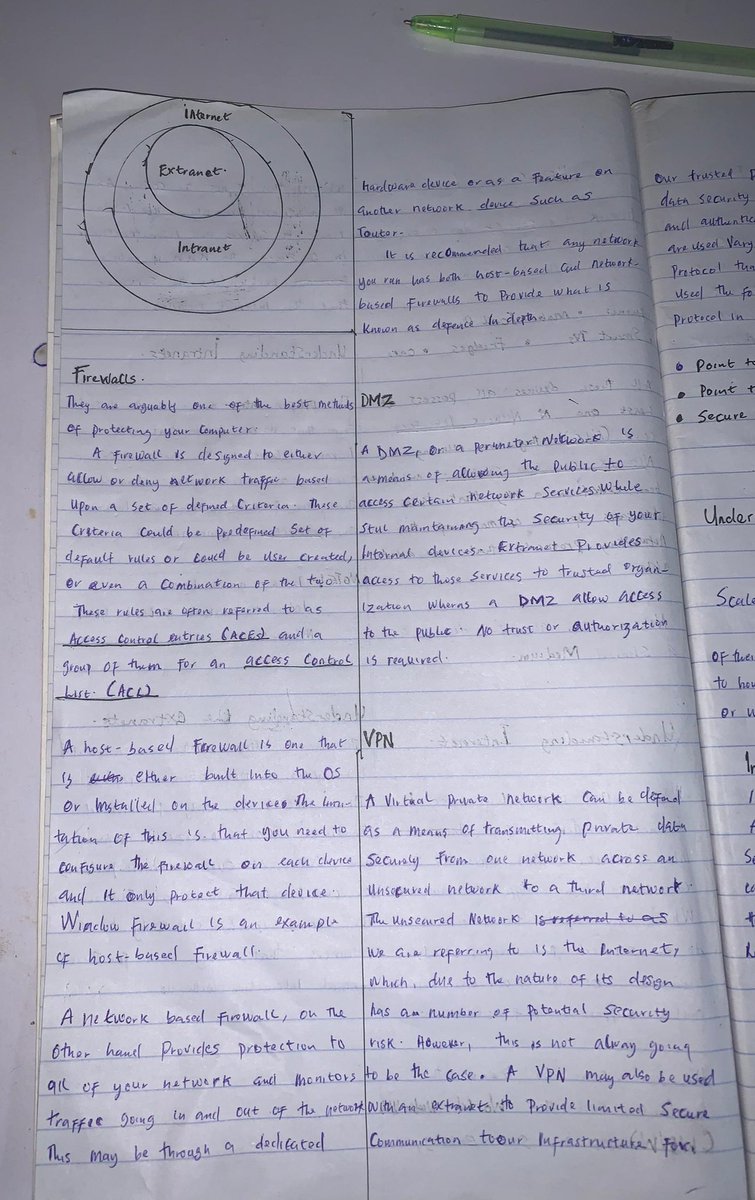 internet
Extranet.
Intranet
Firewalls.
They are arguably one of the best methods
of protecting your computer.
A firewall is designed to either
allow or deny network traffic based
upon a set of defined Criteria. These
Criteria could be predefined set of
default rules or could be user created,
or even a combination of the two
These rules are often referred to as
Access Control entries (ACEs) and a
group of them for an access control
List. (ACL)
A host-based Firewall is one that
is either built into the OS
or installed on the device. The limi-
tation of this is that you need to
configure the firewall on each device
and it only protect that device.
Window Firewall is an example
of host-based firewall.
A network based firewall, on the
other hand provides protection to
all of your network and monitors
traffic going in and out of the network
This may be through a dedicated
hardware device or as a feature on
another network device such as
router.
It is recommended that any network
you run has both host-based and Network-
based Firewalls to Provide what is
known as defence in depth
DMZ
A DMZ, or a perimeter Network is
a means of allowing the public to
access certain network services while
still maintaining the security of your
internal devices. Extranet Provides
access to those services to trusted organ-
ization wherns a DMZ allow access
to the public. No trust or authorization
is required.
VPN
A Virtual private network can be defind
as a means of transmitting private data
securely from one network across an
unsecured network to a third network.
The unsecured Network is referred to as
we are referring to is the internet,
which, due to the nature of its design
has a number of potential security
risk. However, this is not alway going
to be the case. A VPN may also be used
with an extranet to provide limited secure
Communication to our infrastructure for
our trusted
data security
and authentic
are used Vary
Protocol
used the
Protocol in
• Point to
• Point
• Secure
Under
Scale
of their
to
or